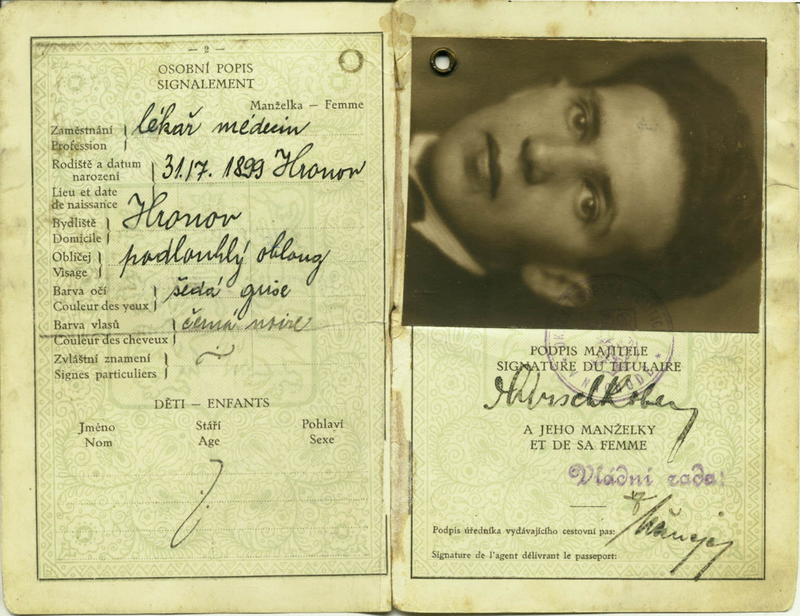 — 2 —
OSOBNÍ POPIS
SIGNALEMENT
Manželka — Femme
Zaměstnání
Profession
lékař médecin
Rodiště a datum
narození
31.17. 1899 Hronov
Lieu et date
de naissance
Bydliště
Domicile
Hronov
Obličej
Visage
podlouhlý oblong
Barva očí
Couleur des yeux
šedá grise
Barva vlasů
Couleur des cheveux
černá noire
Zvláštní znamení
Signes particuliers
DĚTI — ENFANTS
Jméno Stáří Pohlaví
Nom Age Sexe
PODPIS MAJITELE
SIGNATURE DU TITULAIRE
A JEHO MANŽELKY
ET DE SA FEMME
Vládní rada:
Podpis úředníka vydávajícího cestovní pas:
Signature de l'agent délivrant le passeport: